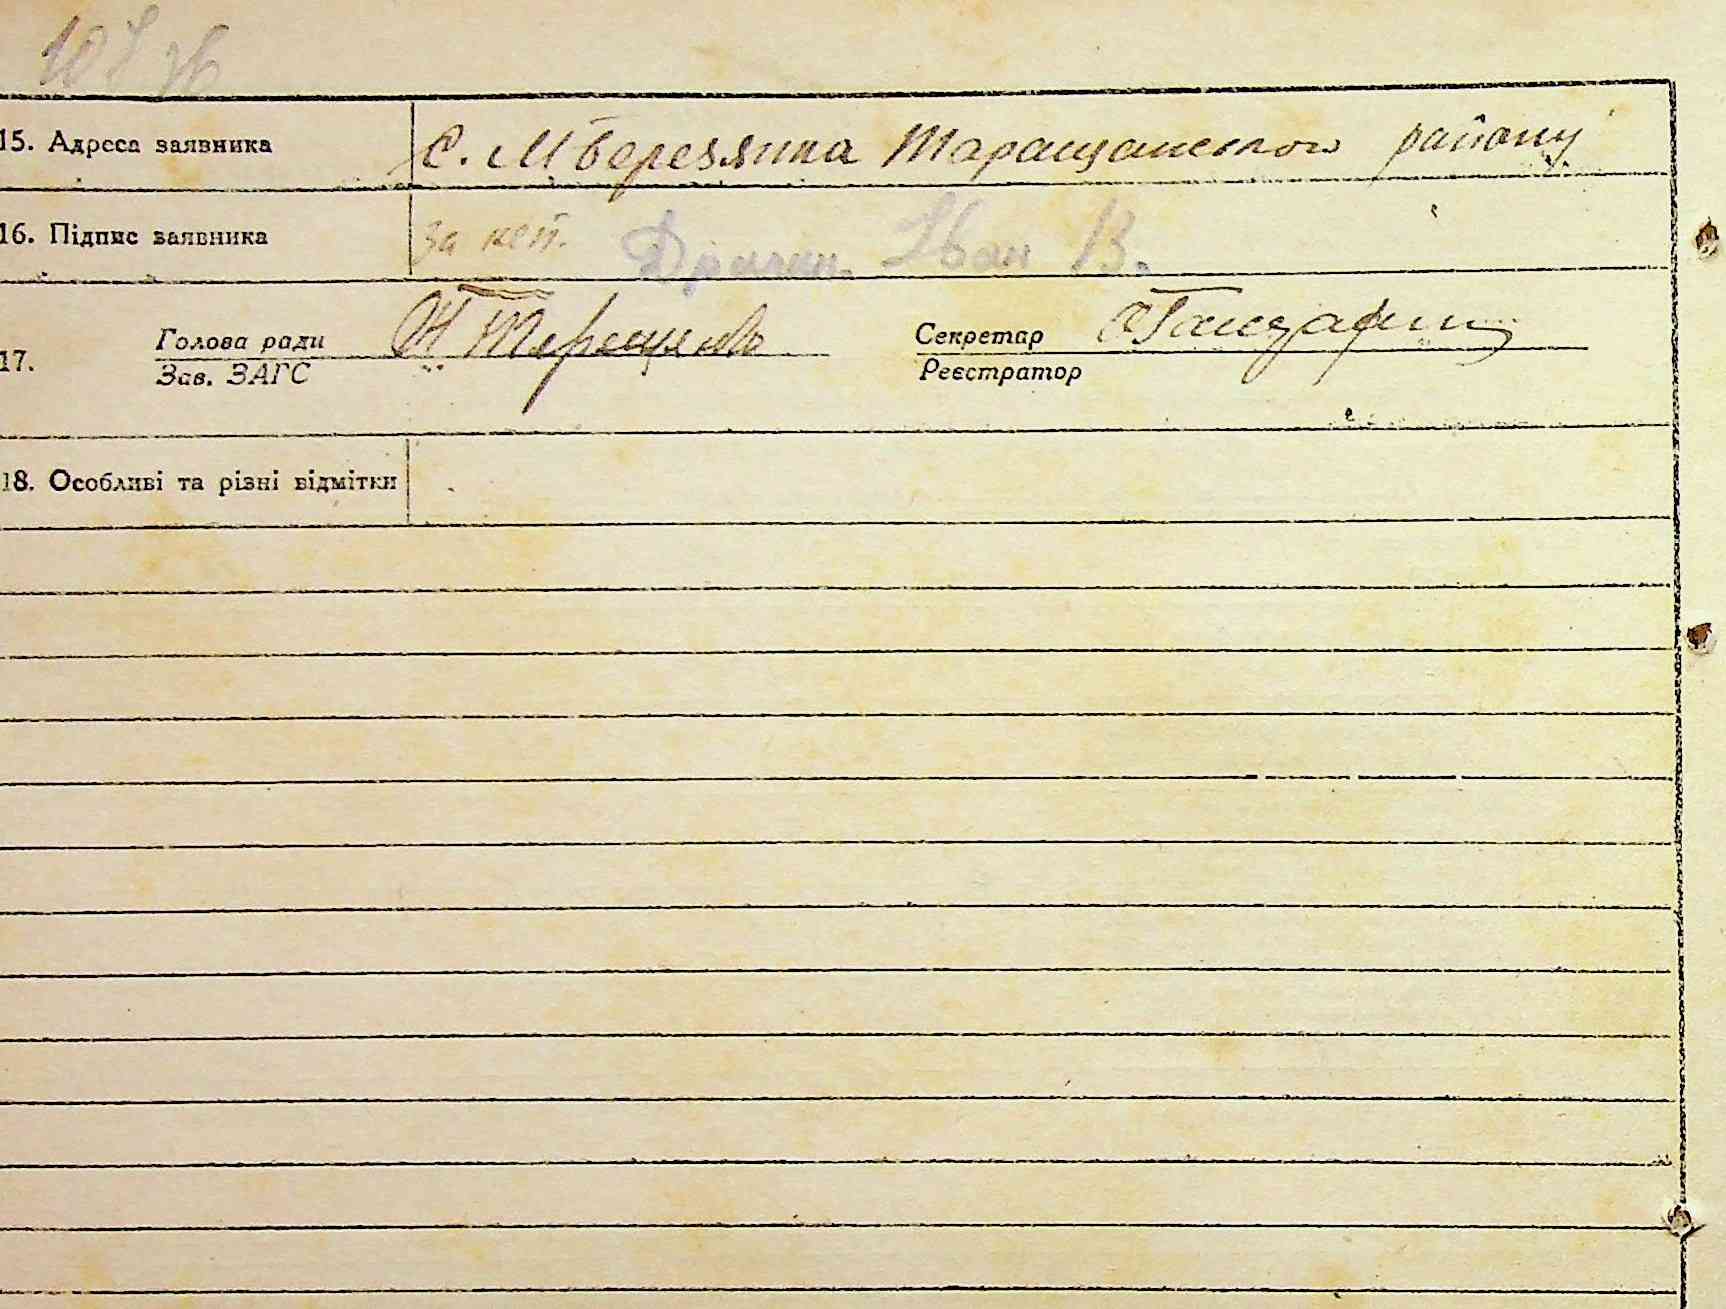 15. Адреса заявника С. М Березянка Таращанского району
16. Підпис заявника за неп. Іван В.
17. Голова ради Терещенко Секретар
Зав. ЗАГС Реєстратор
18. Особливі та різні відмітки